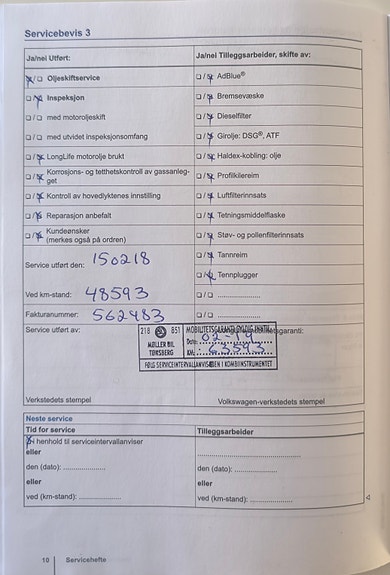 Servicebevis 3
Ja/nei Utført:
Ja/nei Tilleggsarbeider, skifte av:
Oljeskiftservice
AdBlue®
Inspeksjon
Bremsevæske
med motoroljeskift
Dieselfilter
med utvidet inspeksjonsomfang
Girolje: DSG®, ATF
LongLife motorolje brukt
Haldex-kobling: olje
Korrosjons- og tetthetskontroll av gassanleg-
get
Profilkilereim
Kontroll av hovedlyktenes innstilling
Luftfilterinnsats
Reparasjon anbefalt
Tetningsmiddelflaske
Kundeønsker
(merkes også på ordren)
Støv- og pollenfilterinnsats
Tannreim
Service utført den: 150218
Tennplugger
Ved km-stand: 48593
Fakturanummer: 562483
Service utført av:
218 851
MØLLER BIL
TØNSBERG
MOBILITETSGARANTI GYLDIG INNTIL
Dato: 02-19
KM: 63593
FØLG SERVICEINTERVALLANVISEREN I KOMBIINSTRUMENTET
Verkstedets stempel
Volkswagen-verkstedets stempel
Neste service
Tid for service
Tilleggsarbeider
I henhold til serviceintervallanviser
eller
den (dato): ....................
den (dato): ....................
eller
eller
ved (km-stand): ....................
ved (km-stand): ....................
10 Servicehefte